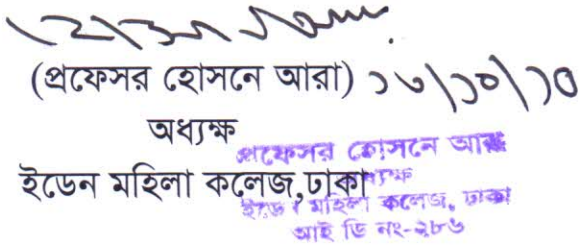 (প্রফেসর হোসনে আরা) ১৬/১০/১৩
অধ্যক্ষ
ইডেন মহিলা কলেজ,ঢাকা
প্রফেসর হোসনে আরা
অধ্যক্ষ
ইডেন মহিলা কলেজ, ঢাকা
আই ডি নং-২৮৬